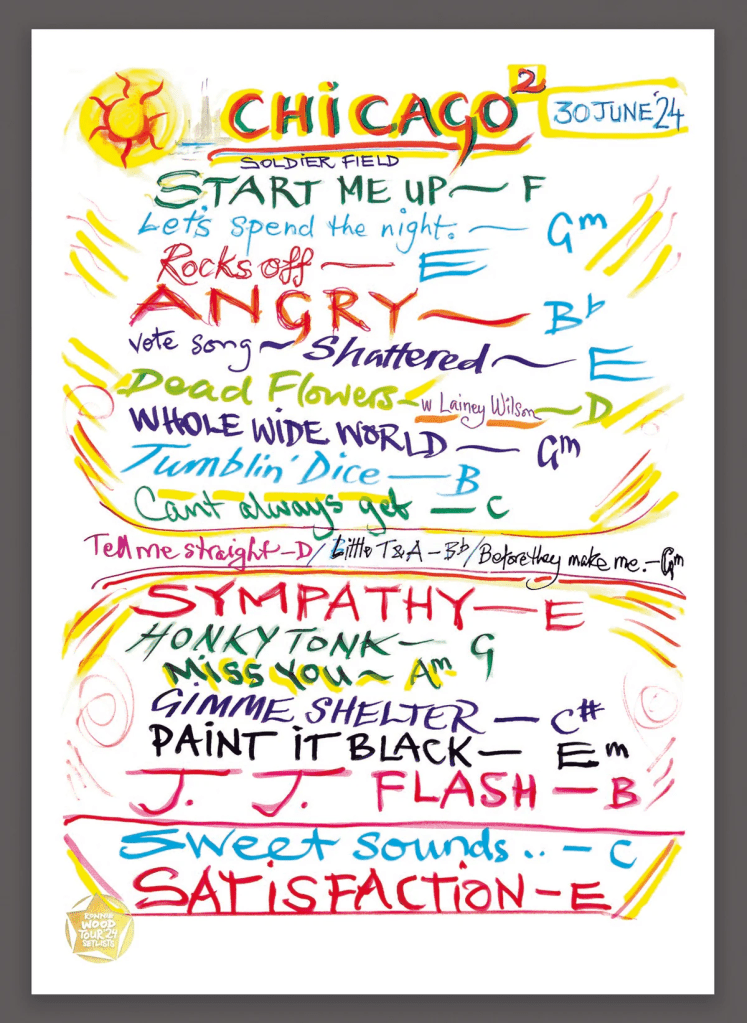 CHiCAGO 2
30 JUNE '24
SOLDiER FiELD
START ME UP — F
Let's spend the night. — Gm
Rocks off — E
ANGRY — Bb
vote song ~ Shattered — E
Dead Flowers — w Lainey Wilson — D
WHOLE WiDE WORLD — Gm
Tumblin' Dice — B
Cant always get — C
Tell me straight – D / Little T&A – Bb / Before they make me. – Gm
SYMPATHY — E
HONKY TONK — G
MiSS YOU ~ Am
GIMME SHELTER — C#
PAiNT iT BLACK — Em
J. J. FLASH — B
Sweet sounds.. – C
SATiSFACTiON – E
RONNIE
WOOD
TOUR '24
SETLISTS